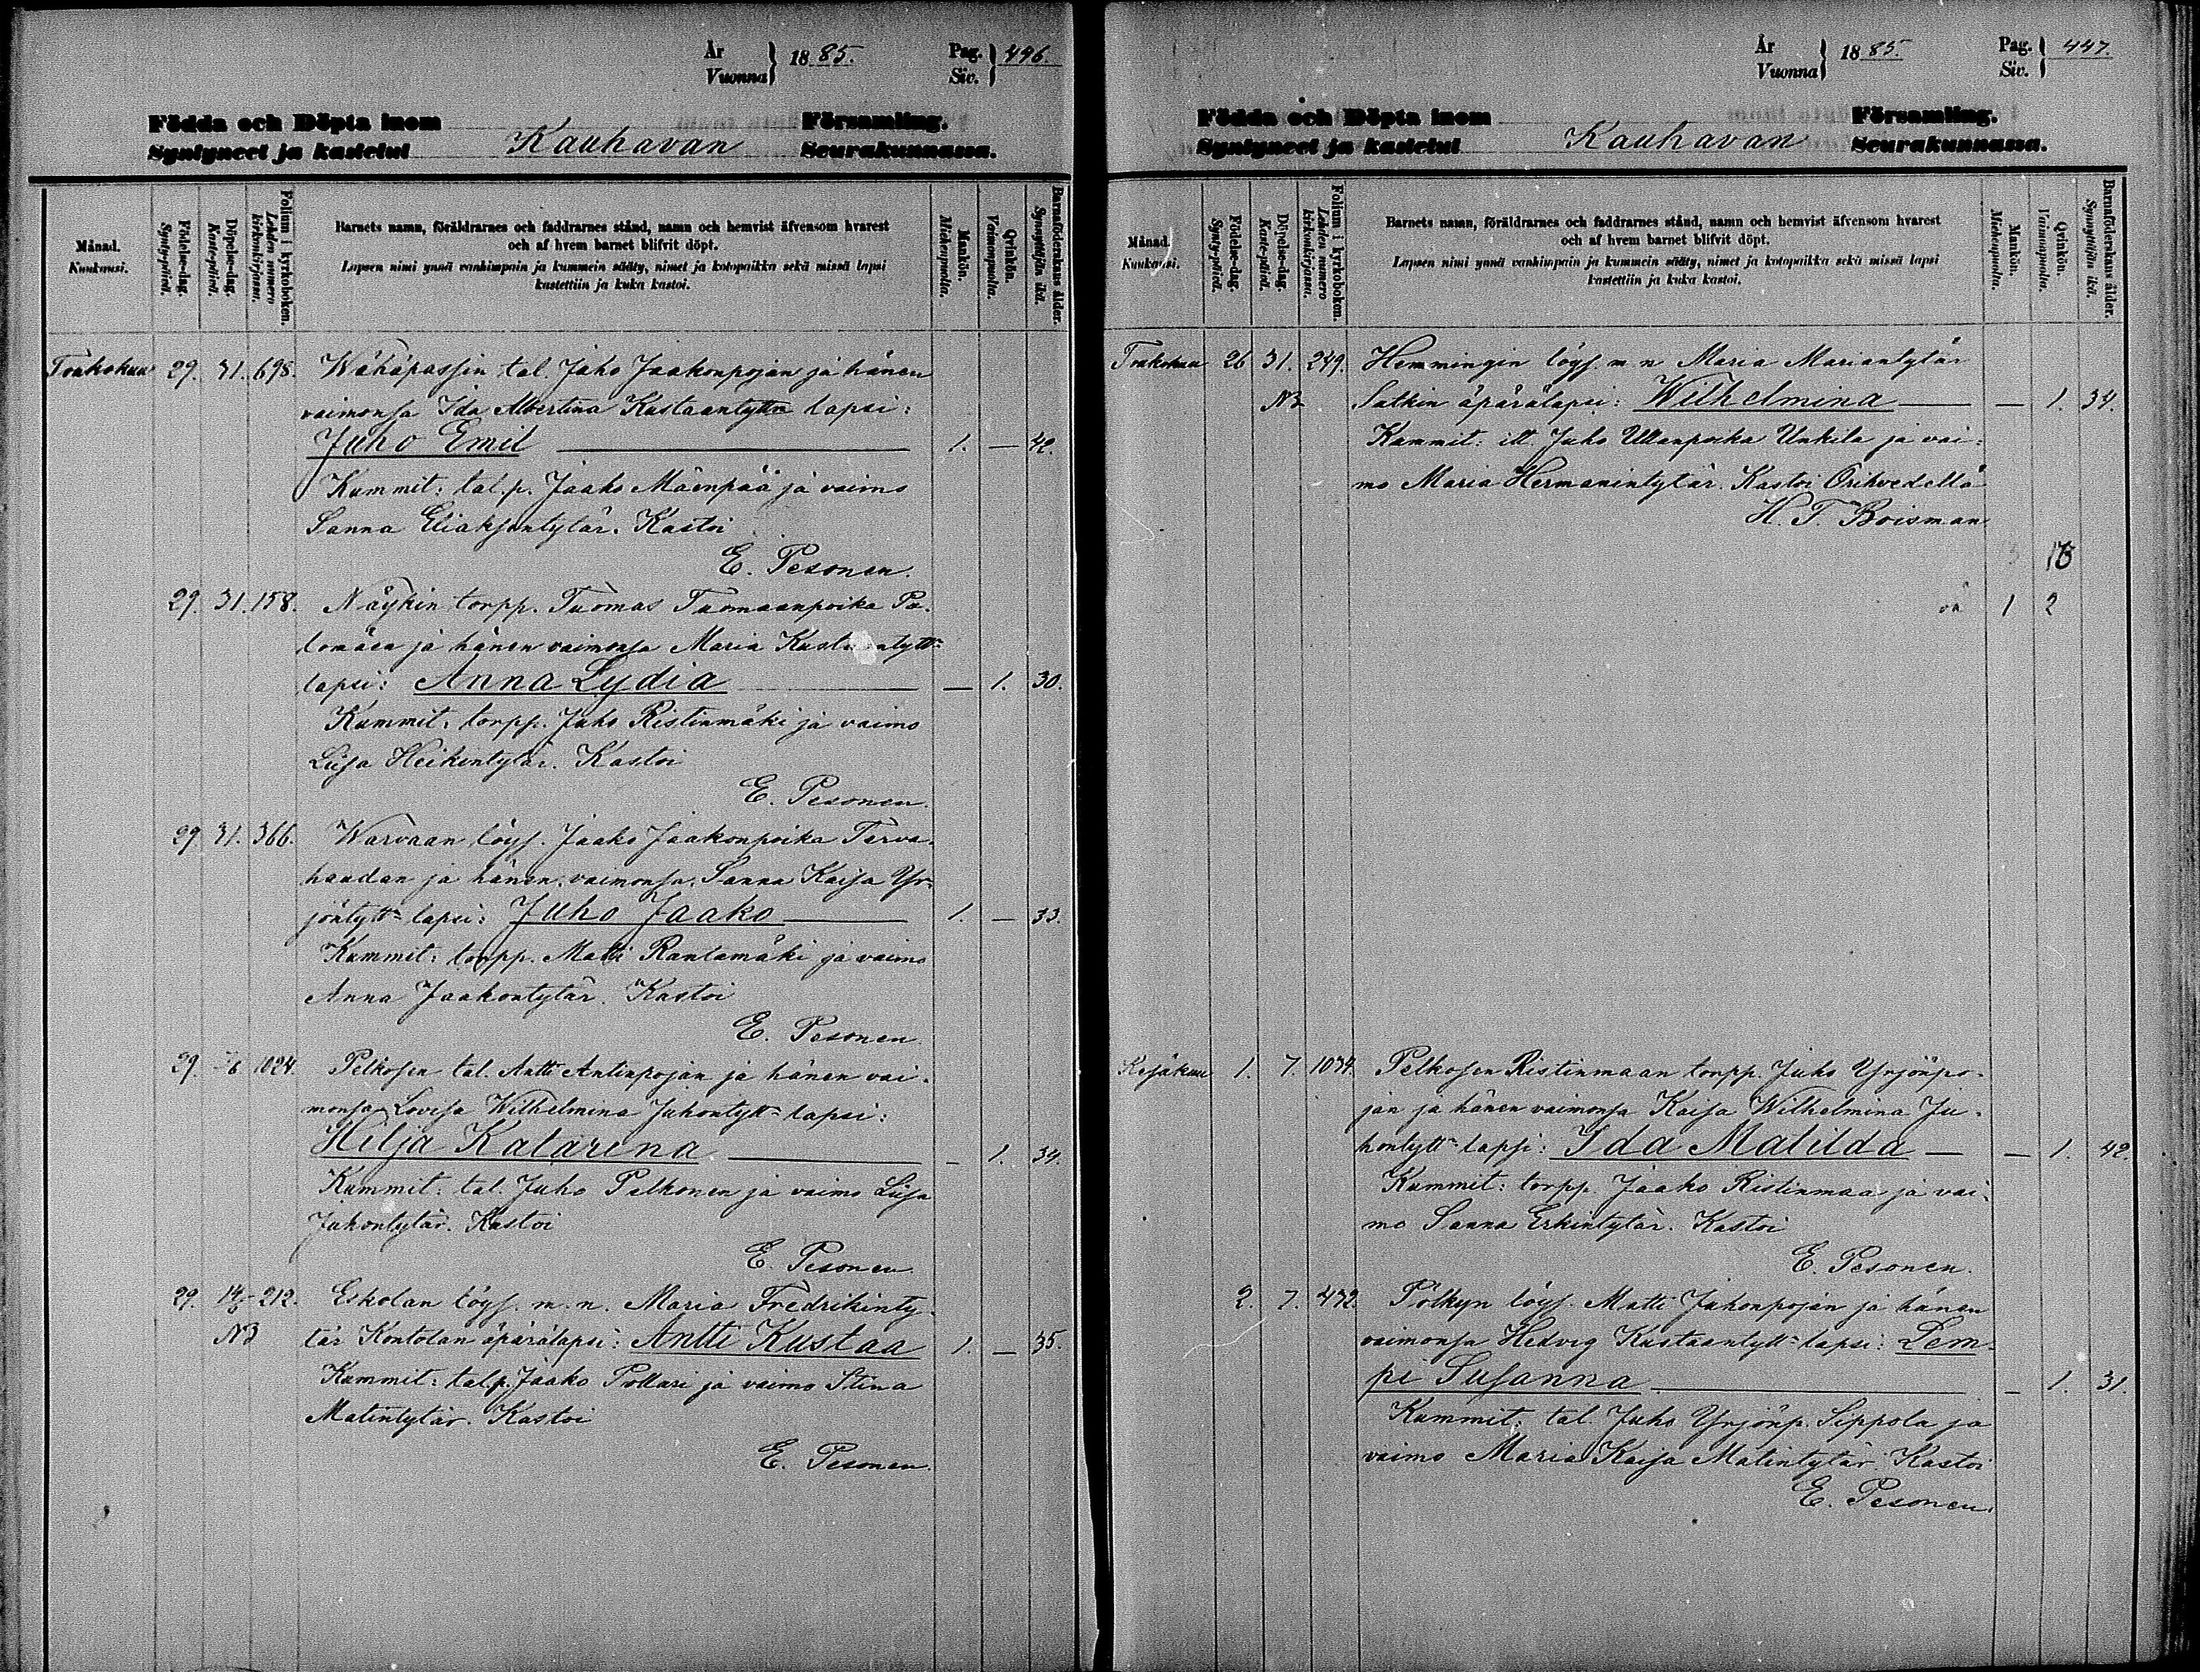 År
Vuonna } 1885.
Pag.
Siv. } 446.
Födda och Döpta inom
Syntyneet ja kastetut
Kauhavan
Församling.
Seurakunnassa.
Månad.
Kuukausi.
Födelse-dag.
Synty-päivä.
Döpelse-dag.
Kaste-päivä.
Folium i kyrkoboken.
Lehden numero kirkonkirjassa.
Barnets namn, föräldrarnes och faddrarnes stånd, namn och hemvist äfvensom hvarest
och af hvem barnet blifvit döpt.
Lapsen nimi ynnä vanhimpain ja kummein sääty, nimet ja kotopaikka sekä missä lapsi
kastettiin ja kuka kastoi.
Mankön.
Miehenpuolia.
Qvinkön.
Vaimonpuolia.
Barnaföderskans ålder.
Synnyttäjän ikä.
Toukokuu 29. 31. 698. Wähäpassin tal. Juho Jaakonpojan ja hänen
vaimonsa Ida Albertina Kustaantyttn lapsi:
Juho Emil 1. — 42.
Kummit: tal.p. Jaako Mäenpää ja vaimo
Sanna Eliaksentytär. Kastoi
E. Pesonen.
29. 31. 158. Näykin torpp. Tuomas Tuomaanpoika Pa-
lomäen ja hänen vaimonsa Maria Kustaantyttn
lapsi: Anna Lydia — 1. 30.
Kummit: torpp. Juho Ristinmäki ja vaimo
Liisa Heikintytär. Kastoi
E. Pesonen.
29. 31. 366. Warvaan löys. Jaako Jaakonpoika Terva-
haudan ja hänen vaimonsa Sanna Kaisa Yr-
jöntyttn lapsi: Juho Jaako 1. — 33.
Kummit: torpp. Matti Rantamäki ja vaimo
Anna Jaakontytär. Kastoi
E. Pesonen.
29. 7/6 1024. Pelkosen tal. Antti Antinpojan ja hänen vai-
monsa Lovisa Wilhelmina Juhontyttn lapsi:
Hilja Katarina — 1. 34.
Kummit: tal. Juho Pelkonen ja vaimo Liisa
Juhontytär. Kastoi
E. Pesonen.
29. 14/6 212. Eskolan löys. m. n. Maria Fredrikinty-
NB tär Kontolan äpärälapsi: Antti Kustaa 1. — 35.
Kummit: tal.p. Jaako Pollari ja vaimo Stina
Matintytär. Kastoi
E. Pesonen.
År
Vuonna } 1885.
Pag.
Siv. } 447.
Födda och Döpta inom
Syntyneet ja kastetut
Kauhavan
Församling.
Seurakunnassa.
Månad.
Kuukausi.
Födelse-dag.
Synty-päivä.
Döpelse-dag.
Kaste-päivä.
Folium i kyrkoboken.
Lehden numero kirkonkirjassa.
Barnets namn, föräldrarnes och faddrarnes stånd, namn och hemvist äfvensom hvarest
och af hvem barnet blifvit döpt.
Lapsen nimi ynnä vanhimpain ja kummein sääty, nimet ja kotopaikka sekä missä lapsi
kastettiin ja kuka kastoi.
Mankön.
Miehenpuolia.
Qvinkön.
Vaimonpuolia.
Barnaföderskans ålder.
Synnyttäjän ikä.
Toukokuu 26 31. 249. Hemmingin löys. m n Maria Mariantytär
NB Salkin äpärälapsi: Wilhelmina — 1. 34.
Kummit: itl. Juho Ullanpoika Unkila ja vai-
mo Maria Hermanintytär. Kastoi Orihvedellä
H. T. Boisman
1 2
Kesäkuu 1. 7. 1034. Pelkosen Ristinmaan torpp. Juho Yrjönpo-
jan ja hänen vaimonsa Kaisa Wilhelmina Ju-
hontyttn lapsi: Ida Matilda — 1. 42.
Kummit: torpp. Jaako Ristinmaa ja vai-
mo Sanna Erkintytär. Kastoi
E. Pesonen.
2. 7. 432. Pölkyn löys. Matti Juhonpojan ja hänen
vaimonsa Hedvig Kustaantyttn lapsi: Lem-
pi Susanna — 1. 31.
Kummit: tal. Juho Yrjönp. Sippola ja
vaimo Maria Kaisa Matintytär. Kastoi
E. Pesonen.